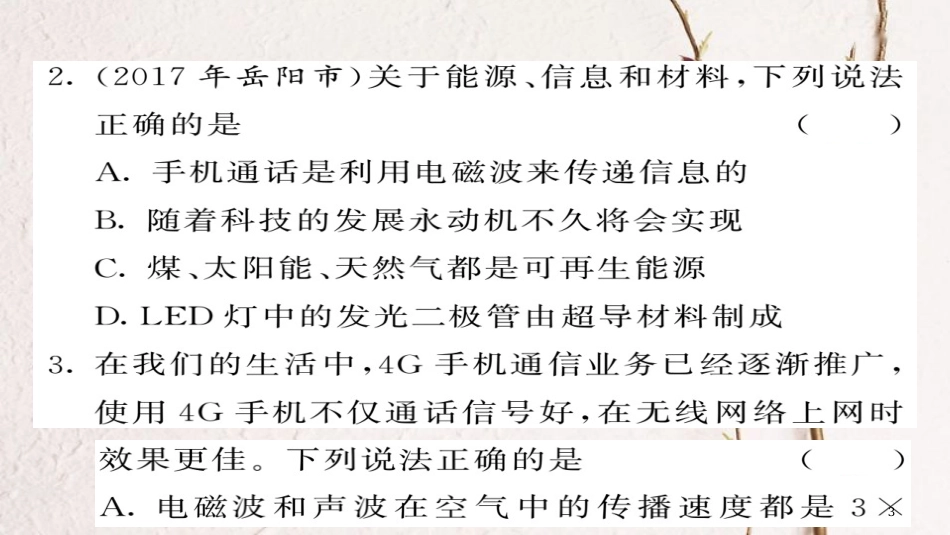 2. (2017 年岳阳市)关于能源、信息和材料,下列说法
正确的是 ( )
A. 手机通话是利用电磁波来传递信息的
B. 随着科技的发展永动机不久将会实现
C. 煤、太阳能、天然气都是可再生能源
D. LED 灯中的发光二极管由超导材料制成
3. 在我们的生活中,4G 手机通信业务已经逐渐推广,
使用 4G 手机不仅通话信号好,在无线网络上网时
效果更佳。下列说法正确的是 ( )
A. 电磁波和声波在空气中的传播速度都是 3×